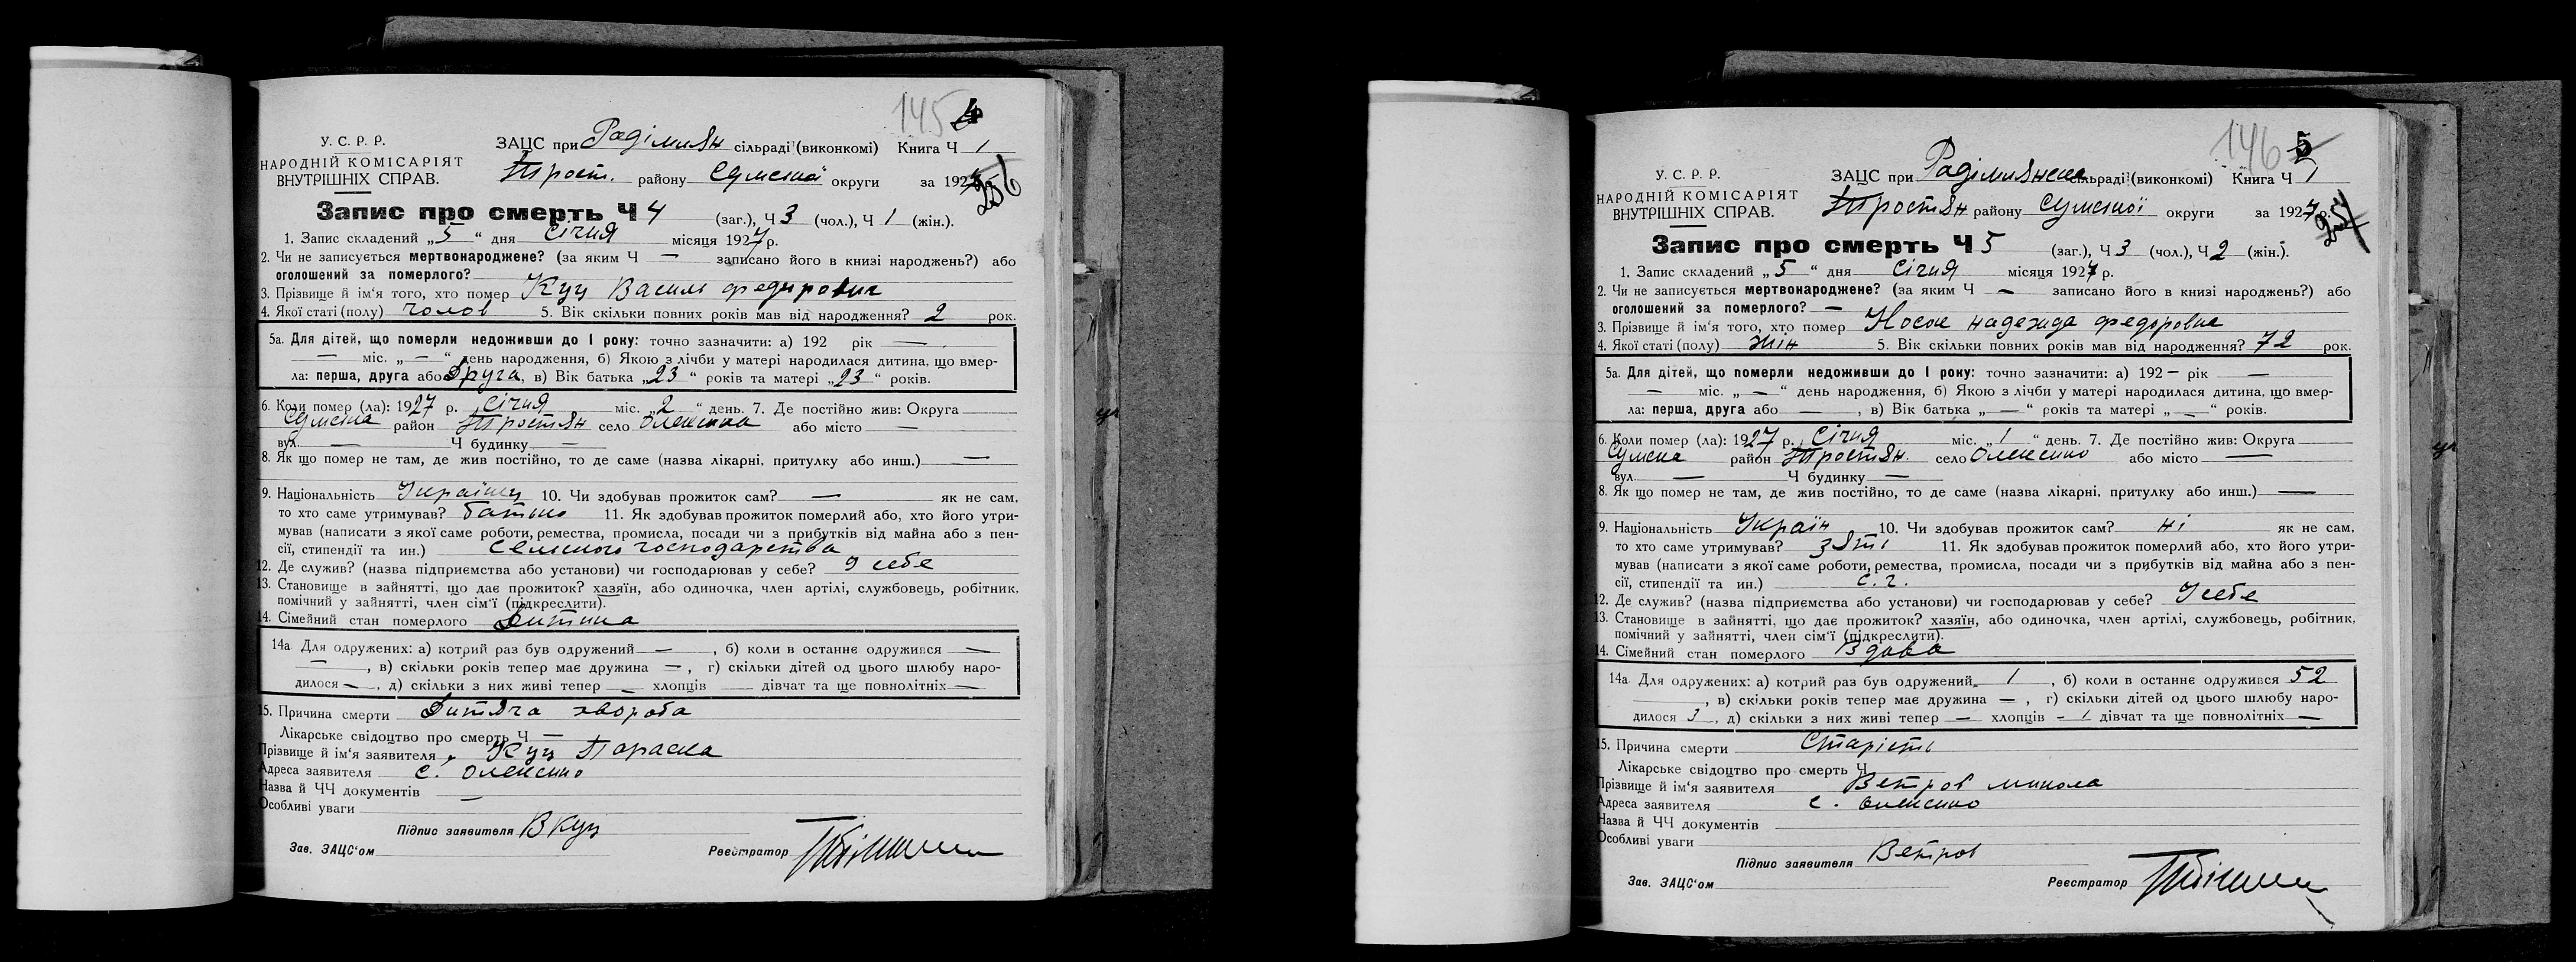 145 4
У. С. Р. Р.
НАРОДНІЙ КОМІСАРІЯТ
ВНУТРІШНІХ СПРАВ.
ЗАЦС при Радімлян сільраді (виконкомі) Книга Ч 1
Трост. району Сумської округи за 192
Запис про смерть Ч 4 (заг.), Ч 3 (чол.), Ч 1 (жін.).
1. Запис складений „5“ дня січня місяця 1927 р.
2. Чи не записується мертвонароджене? (за яким Ч — записано його в книзі народжень?) або
оголошений за померлого?
3. Прізвище й ім‘я того, хто помер Куц Василь Федорович
4. Якої статі (полу) чолов 5. Вік скільки повних років мав від народження? 2 рок.
5а. Для дітей, що померли недоживши до 1 року: точно зазначити: а) 192 рік —
— міс. „—“ день народження, б) Якою з лічби у матері народилася дитина, що вмер-
ла: перша, друга або Друга, в) Вік батька „23“ років та матері „23“ років.
6. Коли помер (ла): 1927 р. січня міс. „2“ день. 7. Де постійно жив: Округа
Сумська район Тростян село Олексина або місто —
вул. — Ч будинку —
8. Як що помер не там, де жив постійно, то де саме (назва лікарні, притулку або инш.) —
9. Національність Українец 10. Чи здобував прожиток сам? — як не сам,
то хто саме утримував? батько 11. Як здобував прожиток померлий або, хто його утри-
мував (написати з якої саме роботи, ремества, промисла, посади чи з прибутків від майна або з пен-
сії, стипендії та ин.) сельского господарства
12. Де служив? (назва підприємства або установи) чи господарював у себе? у себе
13. Становище в зайнятті, що дає прожиток? хазяїн, або одиночка, член артілі, службовець, робітник,
помічний у зайнятті, член сім‘ї (підкреслити).
14. Сімейний стан померлого Дитина
14а Для одружених: а) котрий раз був одружений —, б) коли в останнє одружився —
—, в) скільки років тепер має дружина —, г) скільки дітей од цього шлюбу наро-
дилося —, д) скільки з них живі тепер — хлопців — дівчат та ще повнолітніх —
15. Причина смерти Дитяча хвороба
Лікарське свідоцтво про смерть Ч —
Прізвище й ім‘я заявителя Куц Параска
Адреса заявителя с. Олексино
Назва й ЧЧ документів —
Особливі уваги
Підпис заявителя В Куц
Зав. ЗАЦС‘ом Реєстратор
146 5
У. С. Р. Р.
НАРОДНІЙ КОМІСАРІЯТ
ВНУТРІШНІХ СПРАВ.
ЗАЦС при Радімлянска сільраді (виконкомі) Книга Ч 1
Тростян району Сумської округи за 1927 р.
Запис про смерть Ч 5 (заг.), Ч 3 (чол.), Ч 2 (жін.).
1. Запис складений „5“ дня січня місяця 1927 р.
2. Чи не записується мертвонароджене? (за яким Ч — записано його в книзі народжень?) або
оголошений за померлого? —
3. Прізвище й ім‘я того, хто помер Носок Надежда Федоровна
4. Якої статі (полу) жін 5. Вік скільки повних років мав від народження? 72 рок.
5а. Для дітей, що померли недоживши до 1 року: точно зазначити: а) 192 — рік —
— міс. „—“ день народження, б) Якою з лічби у матері народилася дитина, що вмер-
ла: перша, друга або —, в) Вік батька „—“ років та матері „—“ років.
6. Коли помер (ла): 1927 р. січня міс. „1“ день. 7. Де постійно жив: Округа
Сумска район Тростян. село Олексино або місто —
вул. — Ч будинку —
8. Як що помер не там, де жив постійно, то де саме (назва лікарні, притулку або инш.) —
9. Національність Україн 10. Чи здобував прожиток сам? ні як не сам,
то хто саме утримував? зяті 11. Як здобував прожиток померлий або, хто його утри-
мував (написати з якої саме роботи, ремества, промисла, посади чи з прибутків від майна або з пен-
сії, стипендії та ин.) с. г.
12. Де служив? (назва підприємства або установи) чи господарював у себе? У себе
13. Становище в зайнятті, що дає прожиток? хазяїн, або одиночка, член артілі, службовець, робітник,
помічний у зайнятті, член сім‘ї (підкреслити).
14. Сімейний стан померлого Вдова
14а Для одружених: а) котрий раз був одружений 1, б) коли в останнє одружився 52
, в) скільки років тепер має дружина —, г) скільки дітей од цього шлюбу наро-
дилося 3, д) скільки з них живі тепер — хлопців - 1 дівчат та ще повнолітніх —
15. Причина смерти Старість
Лікарське свідоцтво про смерть Ч
Прізвище й ім‘я заявителя Ветров микола
Адреса заявителя с. Олексино
Назва й ЧЧ документів
Особливі уваги
Підпис заявителя Ветров
Зав. ЗАЦС‘ом Реєстратор